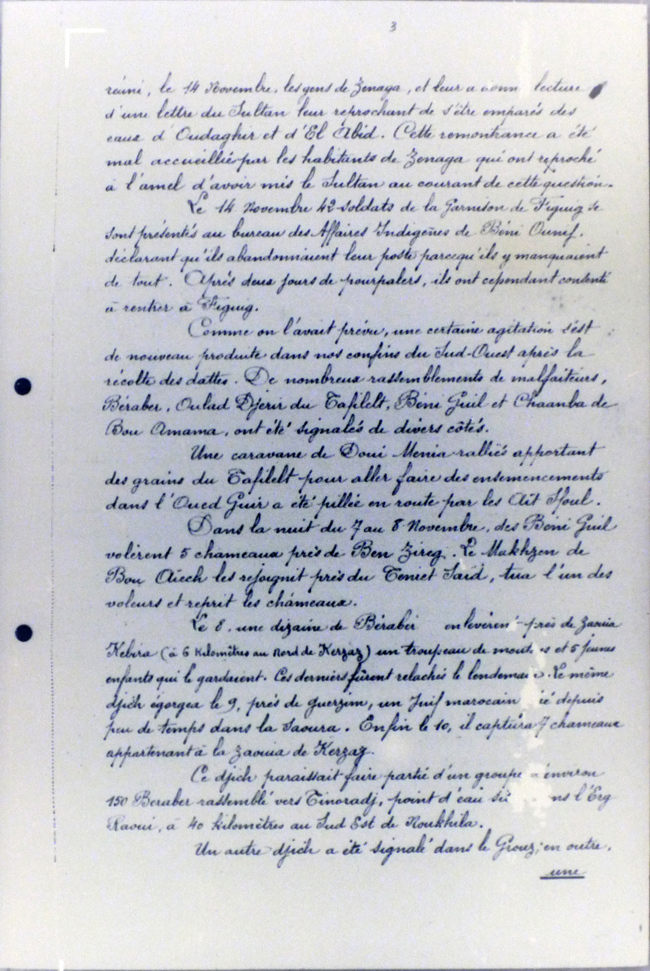 3
réuni, le 14 Novembre, les gens de Zenaga, et leur a donn lecture
d'une lettre du Sultan leur reprochant de s'être emparés des
eaux d'Oudaghir et d'El Abid. Cette remontrance a été
mal accueillie par les habitants de Zenaga qui ont reproché
à l'amel d'avoir mis le Sultan au courant de cette question.
Le 14 Novembre 42 soldats de la Garnison de Figuig se
sont présentés au bureau des Affaires Indigènes de Béni Ounif,
déclarant qu'ils abandonnaient leur poste parcequ'ils y manquaient
de tout. Après deux jours de pourpalers, ils ont cependant consenti
à rentrer à Figuig.
Comme on l'avait prévu, une certaine agitation s'est
de nouveau produite dans nos confins du Sud-Ouest après la
récolte des dattes. De nombreux rassemblements de malfaiteurs,
Béraber, Oulad Djerir du Tafilelt, Béni Guil et Chaanba de
Bou Amama, ont été signalés de divers côtés.
Une caravane de Doui Menia ralliés apportant
des grains du Tafilelt pour aller faire des ensemencements
dans l'Oued Guir a été pillée en route par les Aït Sfoul.
Dans la nuit du 7 au 8 Novembre, des Béni Guil
volèrent 5 chameaux près de Ben Zireg. Le Makhzen de
Bou Aiech les rejoignit près du Teniet Saïd, tua l'un des
voleurs et reprit les chameaux.
Le 8, une dizaine de Béraber enlevèren près de Zaouia
Kebira (à 6 Kilomètres au Nord de Kerzaz) un troupeau de mout s et 5 jeunes
enfants qui le gardaient. Ces derniers furent relachés le lendemain. Le même
djich égorgea le 9, près de Guerzim, un Juif marocain ié depuis
peu de temps dans la Saoura. Enfin le 10, il captura 7 chameaux
appartenant à la Zaouia de Kerzaz.
Ce djich paraissait faire partie d'un groupe d'environ
150 Beraber rassemblé vers Tinoradj, point d'eau si ns l'Erg
Raoui, à 40 kilomètres au Sud Est de Noukhila.
Un autre djich a été signalé dans le Grouz; en outre,
une